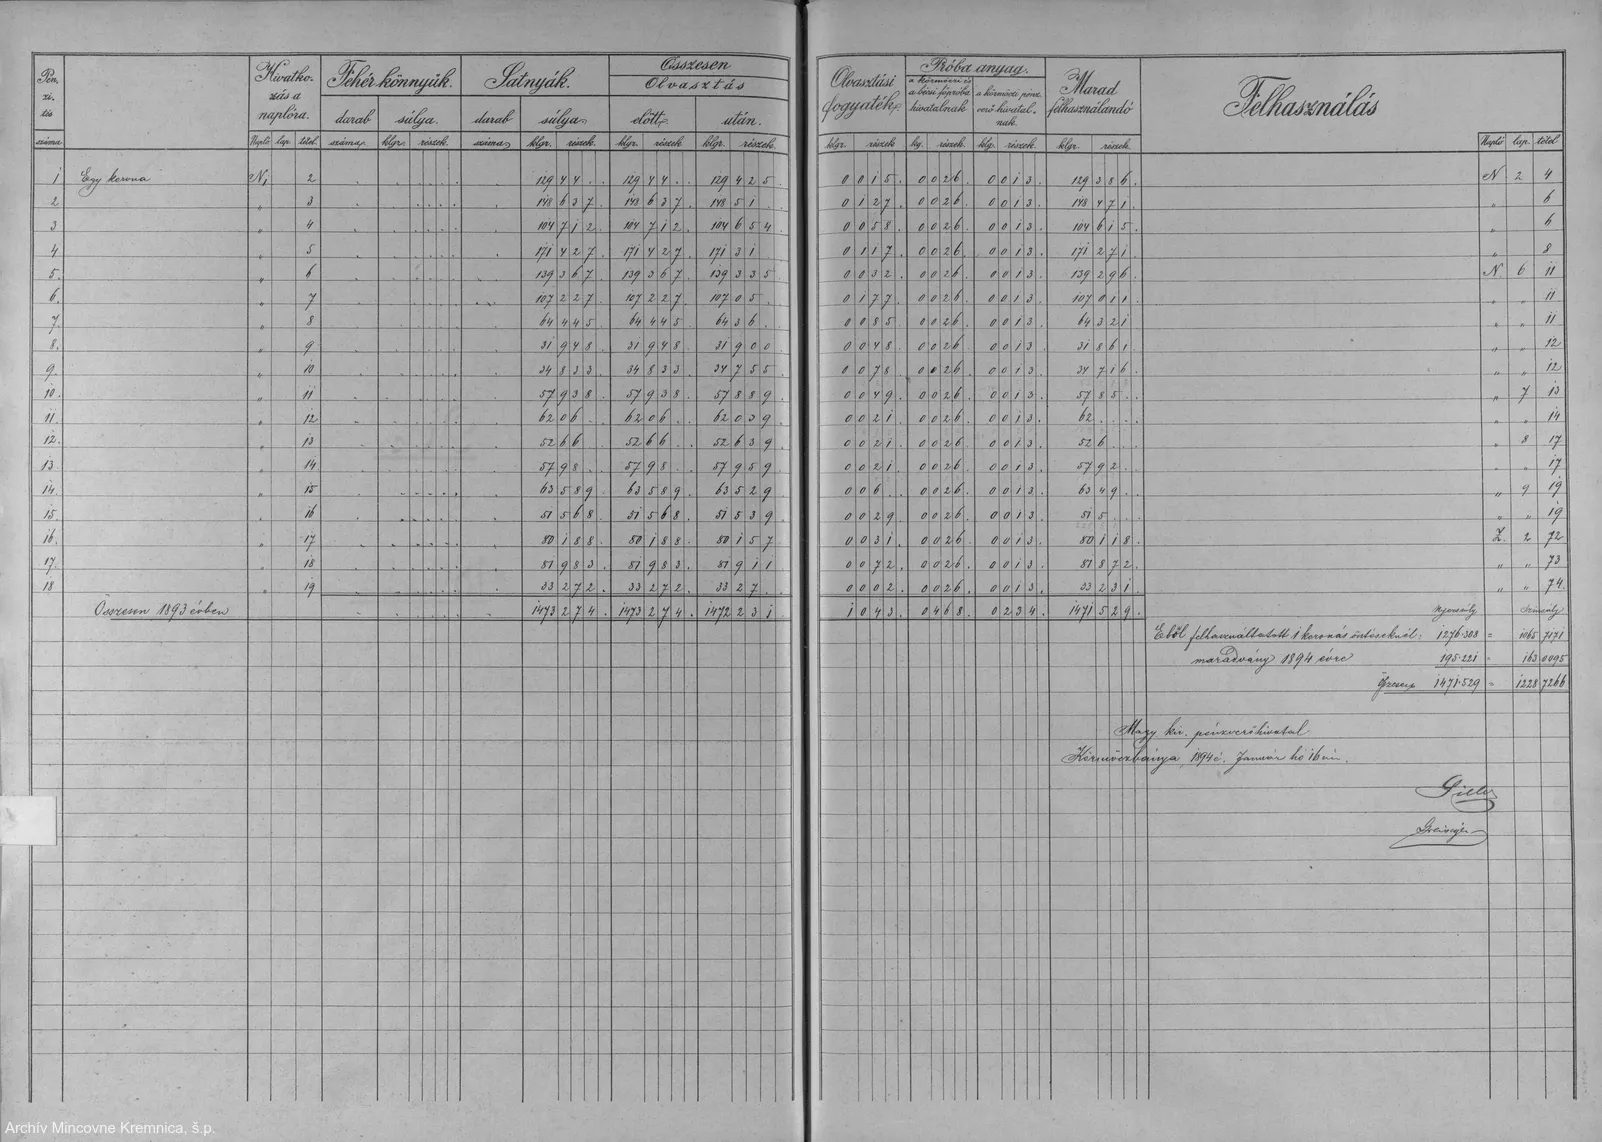 Összesen
Pén- Hivatko- Fehér könnyük. Satnyák. Olvasztás
zi- zás a
tis naplóra. darab súlya. darab súlya előtt. után.
száma Napló lap. tétel. száma. klgr. részek. száma klgr. részek. klgr. részek. klgr. részek.
Olvasztási Próba anyag. Marad Felhasználás
fogyaték. a körmöczi és a bécsi főpróba hivatalnak a körmöczi pénz verő hivatal- nak. felhasználandó
klgr. részek kg. részek. klg. részek. klgr. részek. Napló lap. tétel
1 Egy korona N1 2 129 44 129 44 129 425 0 015 0 026 0 013 129 386 N 2 4
2 " 3 148 637 148 637 148 51 0 127 0 026 0 013 148 471 " 6
3 " 4 104 712 104 712 104 654 0 058 0 026 0 013 104 615 " 6
4 " 5 171 427 171 427 171 31 0 117 0 026 0 013 171 271 " 8
5. " 6 139 367 139 367 139 335 0 032 0 026 0 013 139 296 N 6 11
6. " 7 107 227 107 227 107 05 0 177 0 026 0 013 107 011 " " 11
7. " 8 64 445 64 445 64 36 0 085 0 026 0 013 64 321 " " 11
8. " 9 31 948 31 948 31 900 0 048 0 026 0 013 31 861 " " 12
9. " 10 34 833 34 833 34 755 0 078 0 026 0 013 34 716 " " 12
10. " 11 57 938 57 938 57 889 0 049 0 026 0 013 57 85 " 7 13
11. " 12 62 06 62 06 62 039 0 021 0 026 0 013 62 " " 14
12. " 13 52 66 52 66 52 639 0 021 0 026 0 013 52 6 " 8 17
13 " 14 57 98 57 98 57 959 0 021 0 026 0 013 57 92 " " 17
14. " 15 63 589 63 589 63 529 0 06 0 026 0 013 63 49 " 9 19
15. " 16 51 568 51 568 51 539 0 029 0 026 0 013 51 5 " " 19
16. " 17 80 188 80 188 80 157 0 031 0 026 0 013 80 118 Z. 2 72
17. " 18 81 983 81 983 81 911 0 072 0 026 0 013 81 872 " " 73
18 " 19 33 272 33 272 33 27 0 002 0 026 0 013 33 231 " " 74.
Összesen 1893 évben 1473 274 1473 274 1472 231 1 043 0 468 0 234 1471 529 Nyerssúly Színsúly
Ebből felhasználtatott 1 koronás öntéseknél: 1276·308 = 1065 7171
maradvány 1894 évre 195·221 " 163 0095
Összesen 1471·529 = 1228 7266
Magy kir. pénzverőhivatal
Körmöczbánya, 1894 é. Január hó 16án.
Archív Mincovne Kremnica, š.p.